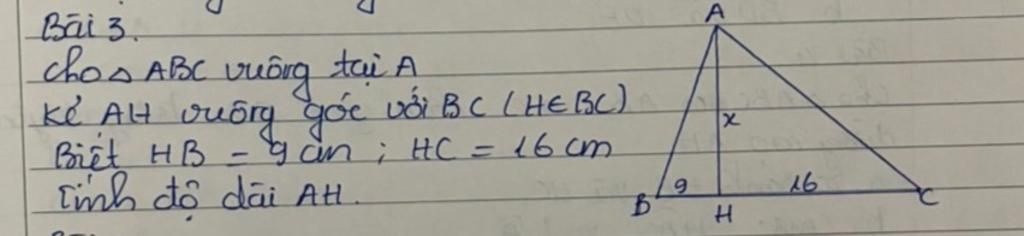 Bài 3.
Cho △ ABC vuông tại A
Kẻ AH vuông góc với BC (H∈BC)
Biết HB = 9 cm ; HC = 16 cm
Tính độ dài AH.
A
x
9
16
B
H
C